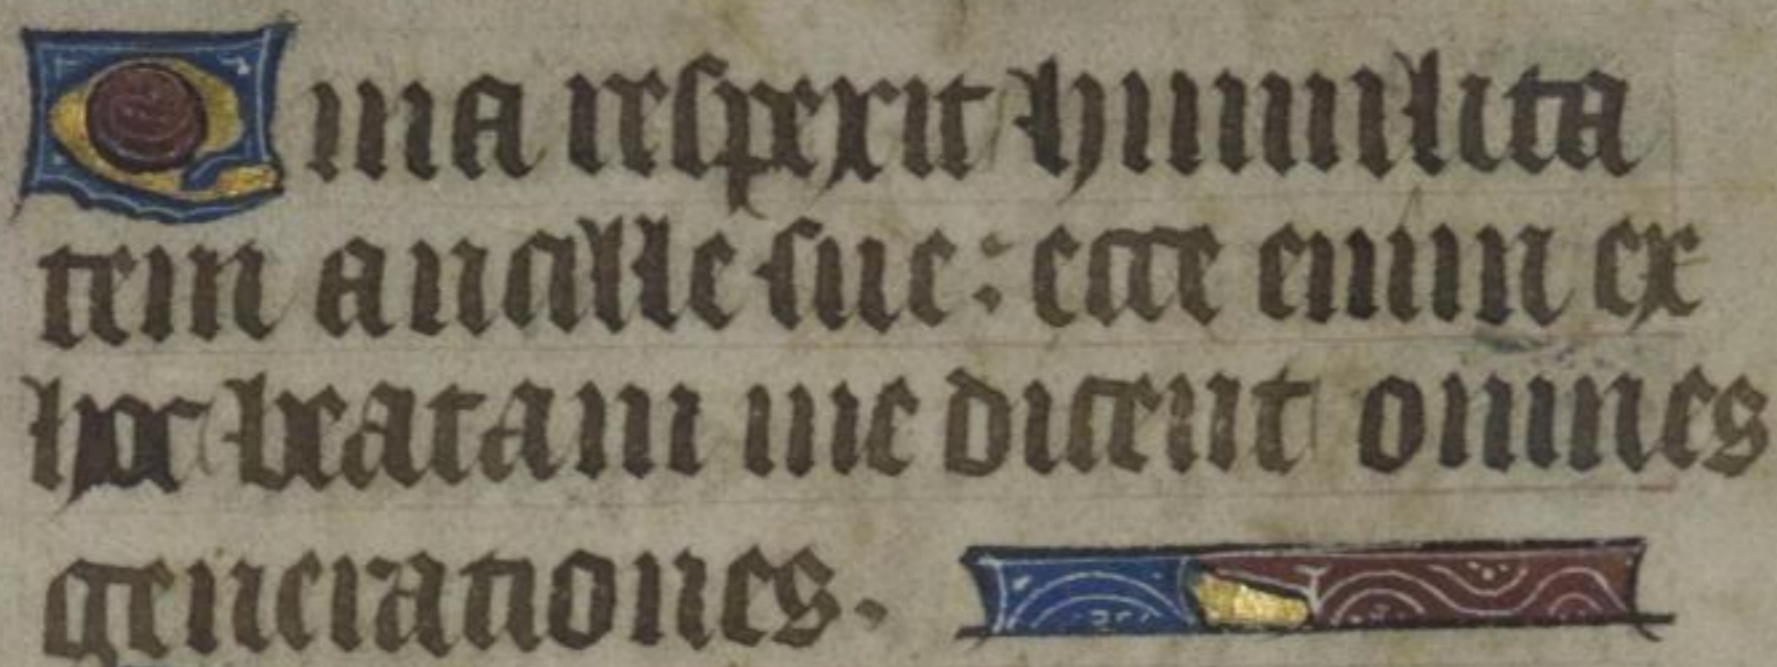 Quia respexit humilita
tem ancille sue: ecce enim ex
hoc beatam me dicent omnes
generationes.